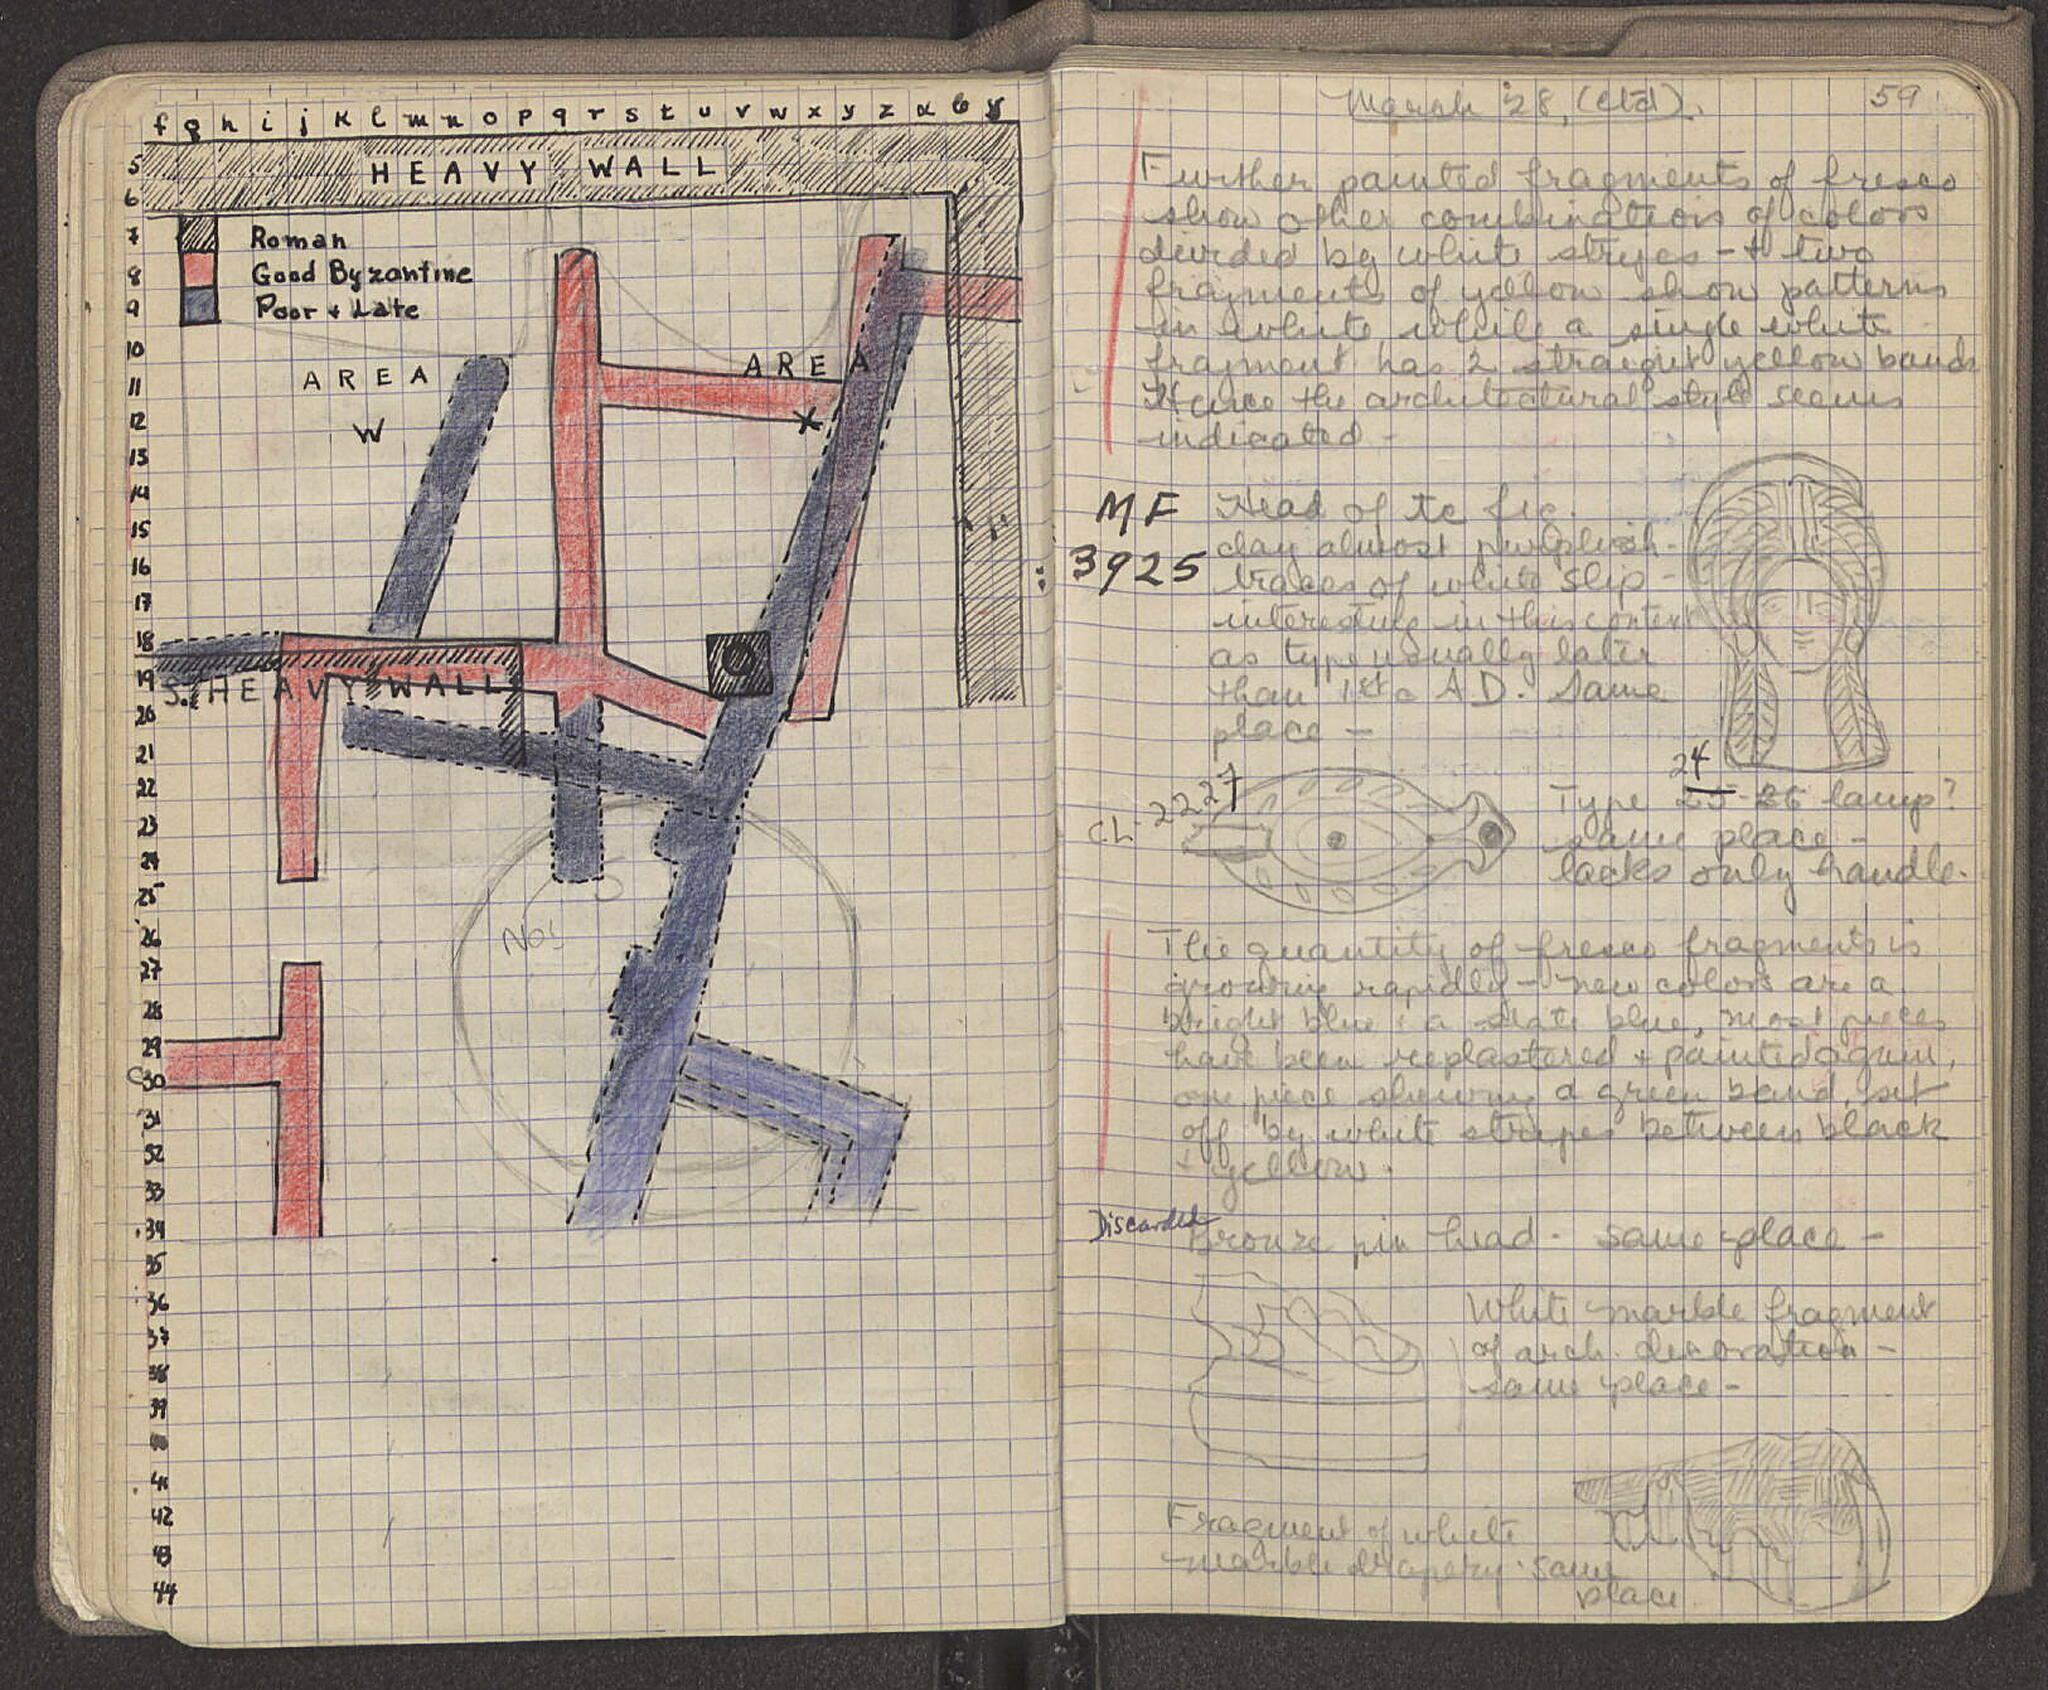 f g h i j k l m n o p q r s t u v w x y z α б γ
5
6
7
8
9
10
11
12
13
14
15
16
17
18
19
20
21
22
23
24
25
26
27
28
29
30
31
32
33
34
35
36
37
38
39
40
41
42
43
44
HEAVY WALL
Roman
Good Byzantine
Poor + Late
AREA
W
AREA
X
S. HEAVY WALL
No!
March 28, (ctd).
59
Further painted fragments of fresco
show other combinations of colors
divided by white stripes - + two
fragments of yellow show patterns
in white while a single white
fragment has 2 straight yellow bands
Hence the architectural style seems
indicated -
MF
3925
Head of tc fig.
clay almost purplish -
traces of white slip -
interesting in this context
as type usually later
than 1st c A.D. Same
place -
C.L. 2227
24
Type 25-26 lamp?
same place -
lacks only handle.
The quantity of fresco fragments is
growing rapidly - new colors are a
bright blue + a slate blue, most pieces
have been replastered + painted again,
one piece showing a green band, set
off by white stripes between black
+ yellow.
Discarded
Bronze pin head - same place -
White marble fragment
of arch. decoration -
same place -
Fragment of white
marble drapery. Same
place.